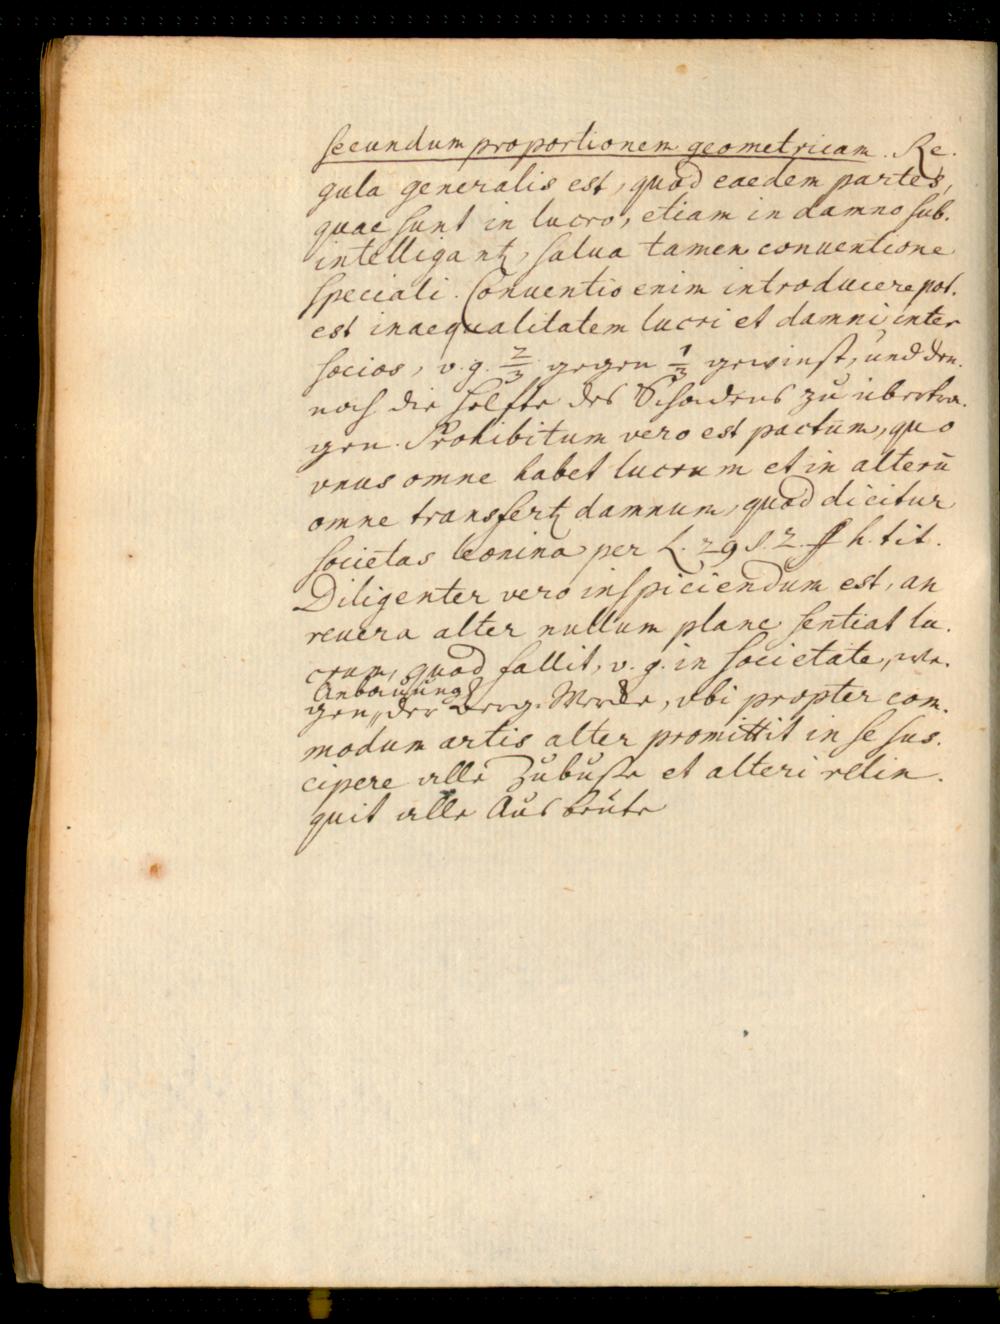 secundum proportionem geometricam. Re-
gula generalis est, quod eaedem partes,
quae sunt in lucro, etiam in damno sub-
intelligantꝫ, salua tamen conuentione
speciali. Conuentio enim introducere pot-
est inaequalitatem lucri et damni inter
socios, v. g. 2/3 gegen 1/3 gewinst, und den-
noch die helfte des Schadens zu übertra-
gen. Prohibitum vero est pactum, quo
vnus omne habet lucrum et in alterū
omne transfertꝫ damnum, quod dicitur
societas leonina per L. 29 §. 2. ff h. tit.
Diligenter vero inspiciendum est, an
reuera alter nullum plane sentiat lu-
crum, quod fallit, v. g. in societate, we-
Anbauung
gen der Berg-Wercke, vbi propter com-
modum artis alter promittit in se sus-
cipere alle Zubuße et alteri relin-
quit alle Ausbeute